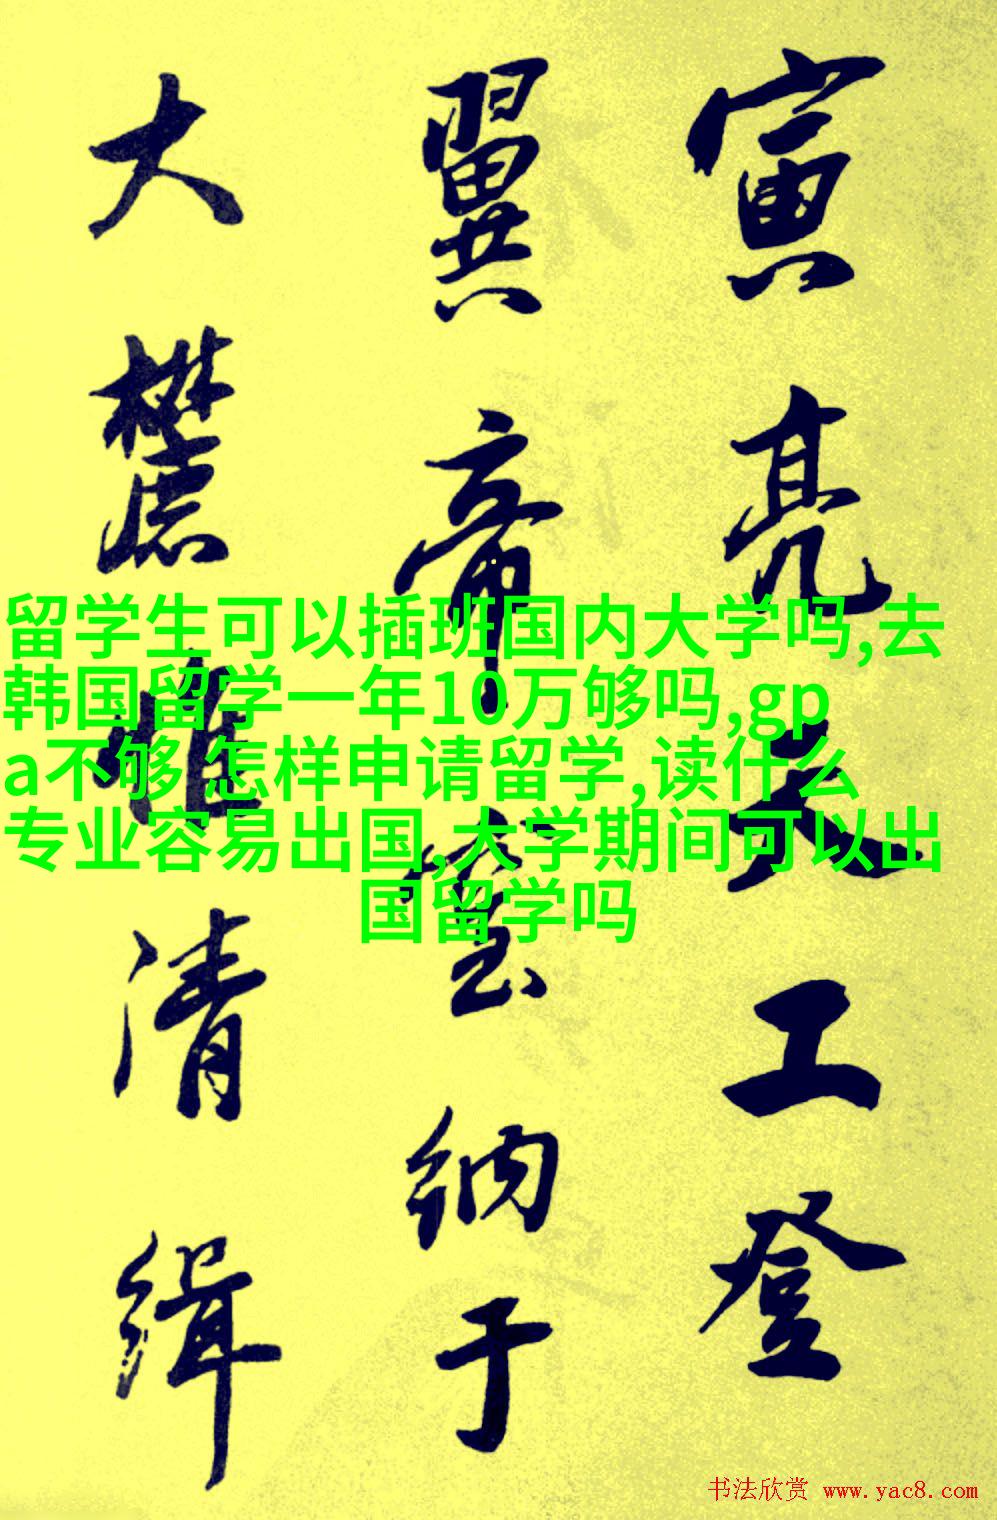 寅亮天工登
翼帝室納于
大麓惟清緝
留学生可以插班国内大学吗,去
韩国留学一年10万够吗,gp
a不够 怎样申请留学,读什么
专业容易出国,大学期间可以出
国留学吗
书法欣赏 www.yac8.com